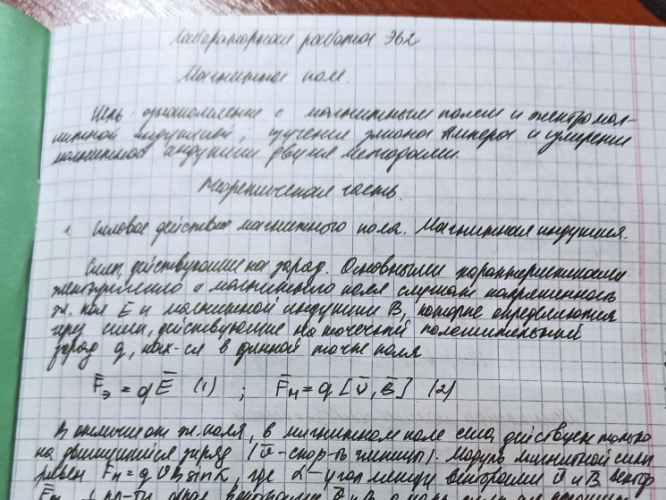 Лабораторная работа Э62
Магнитное поле.
Цель: ознакомление с магнитным полем и электромаг-
нитной индукцией, изучение закона Ампера и измерение
магнитной индукции двумя методами.
Теоретическая часть.
1 Силовое действие магнитного поля. Магнитная индукция.
Силы, действующие на заряд. Основными характеристиками
электрического и магнитного поля служат напряженность
эл. поля E̅ и магнитной индукции B̅, которые определяются
через силы, действующие на точечный положительный
заряд q, нах-ся в данной точке поля
F̅э = qE̅ (1) ; F̅м = q [v̅, B̅] (2)
В отличие от эл. поля, в магнитном поле сила действует только
на движущийся заряд (v̅ - скор-ть частицы). Модуль магнитной силы
равен Fм = q v B sinα, где α - угол между векторами v и B